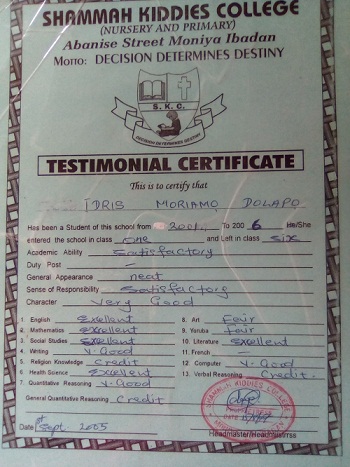 SHAMMAH KIDDIES COLLEGE
(NURSERY AND PRIMARY)
Abanise Street Moniya Ibadan
MOTTO: DECISION DETERMINES DESTINY
S.K.C.
DECISION DETERMINES DESTINY
TESTIMONIAL CERTIFICATE
This is to certify that
IDRIS MORIAMO DOLAPO
Has been a Student of this school from 2001 To 2006 He/She
entered the school in class one and Left in class six
Academic Ability Satisfactory
Duty Post —
General Appearance neat
Sense of Responsibility Satisfactory
Character Very Good
1. English Exellent 8. Art Fair
2. Mathematics Exxellent 9. Yoruba Fair
3. Social Studies Exellent 10. Literature Exellent
4. Writing V. Good 11. French —
5. Religion Knowledge Credit 12 Computer V. Good
6. Health Science Exellent 13. Verbal Reasoning Credit
7. Quantitative Reasoning V. Good
General Quantitative Reasoning Credit
SHAMMAH KIDDIES COLLEGE
Date 1st Sept 2005 Headmaster/Headmistrss